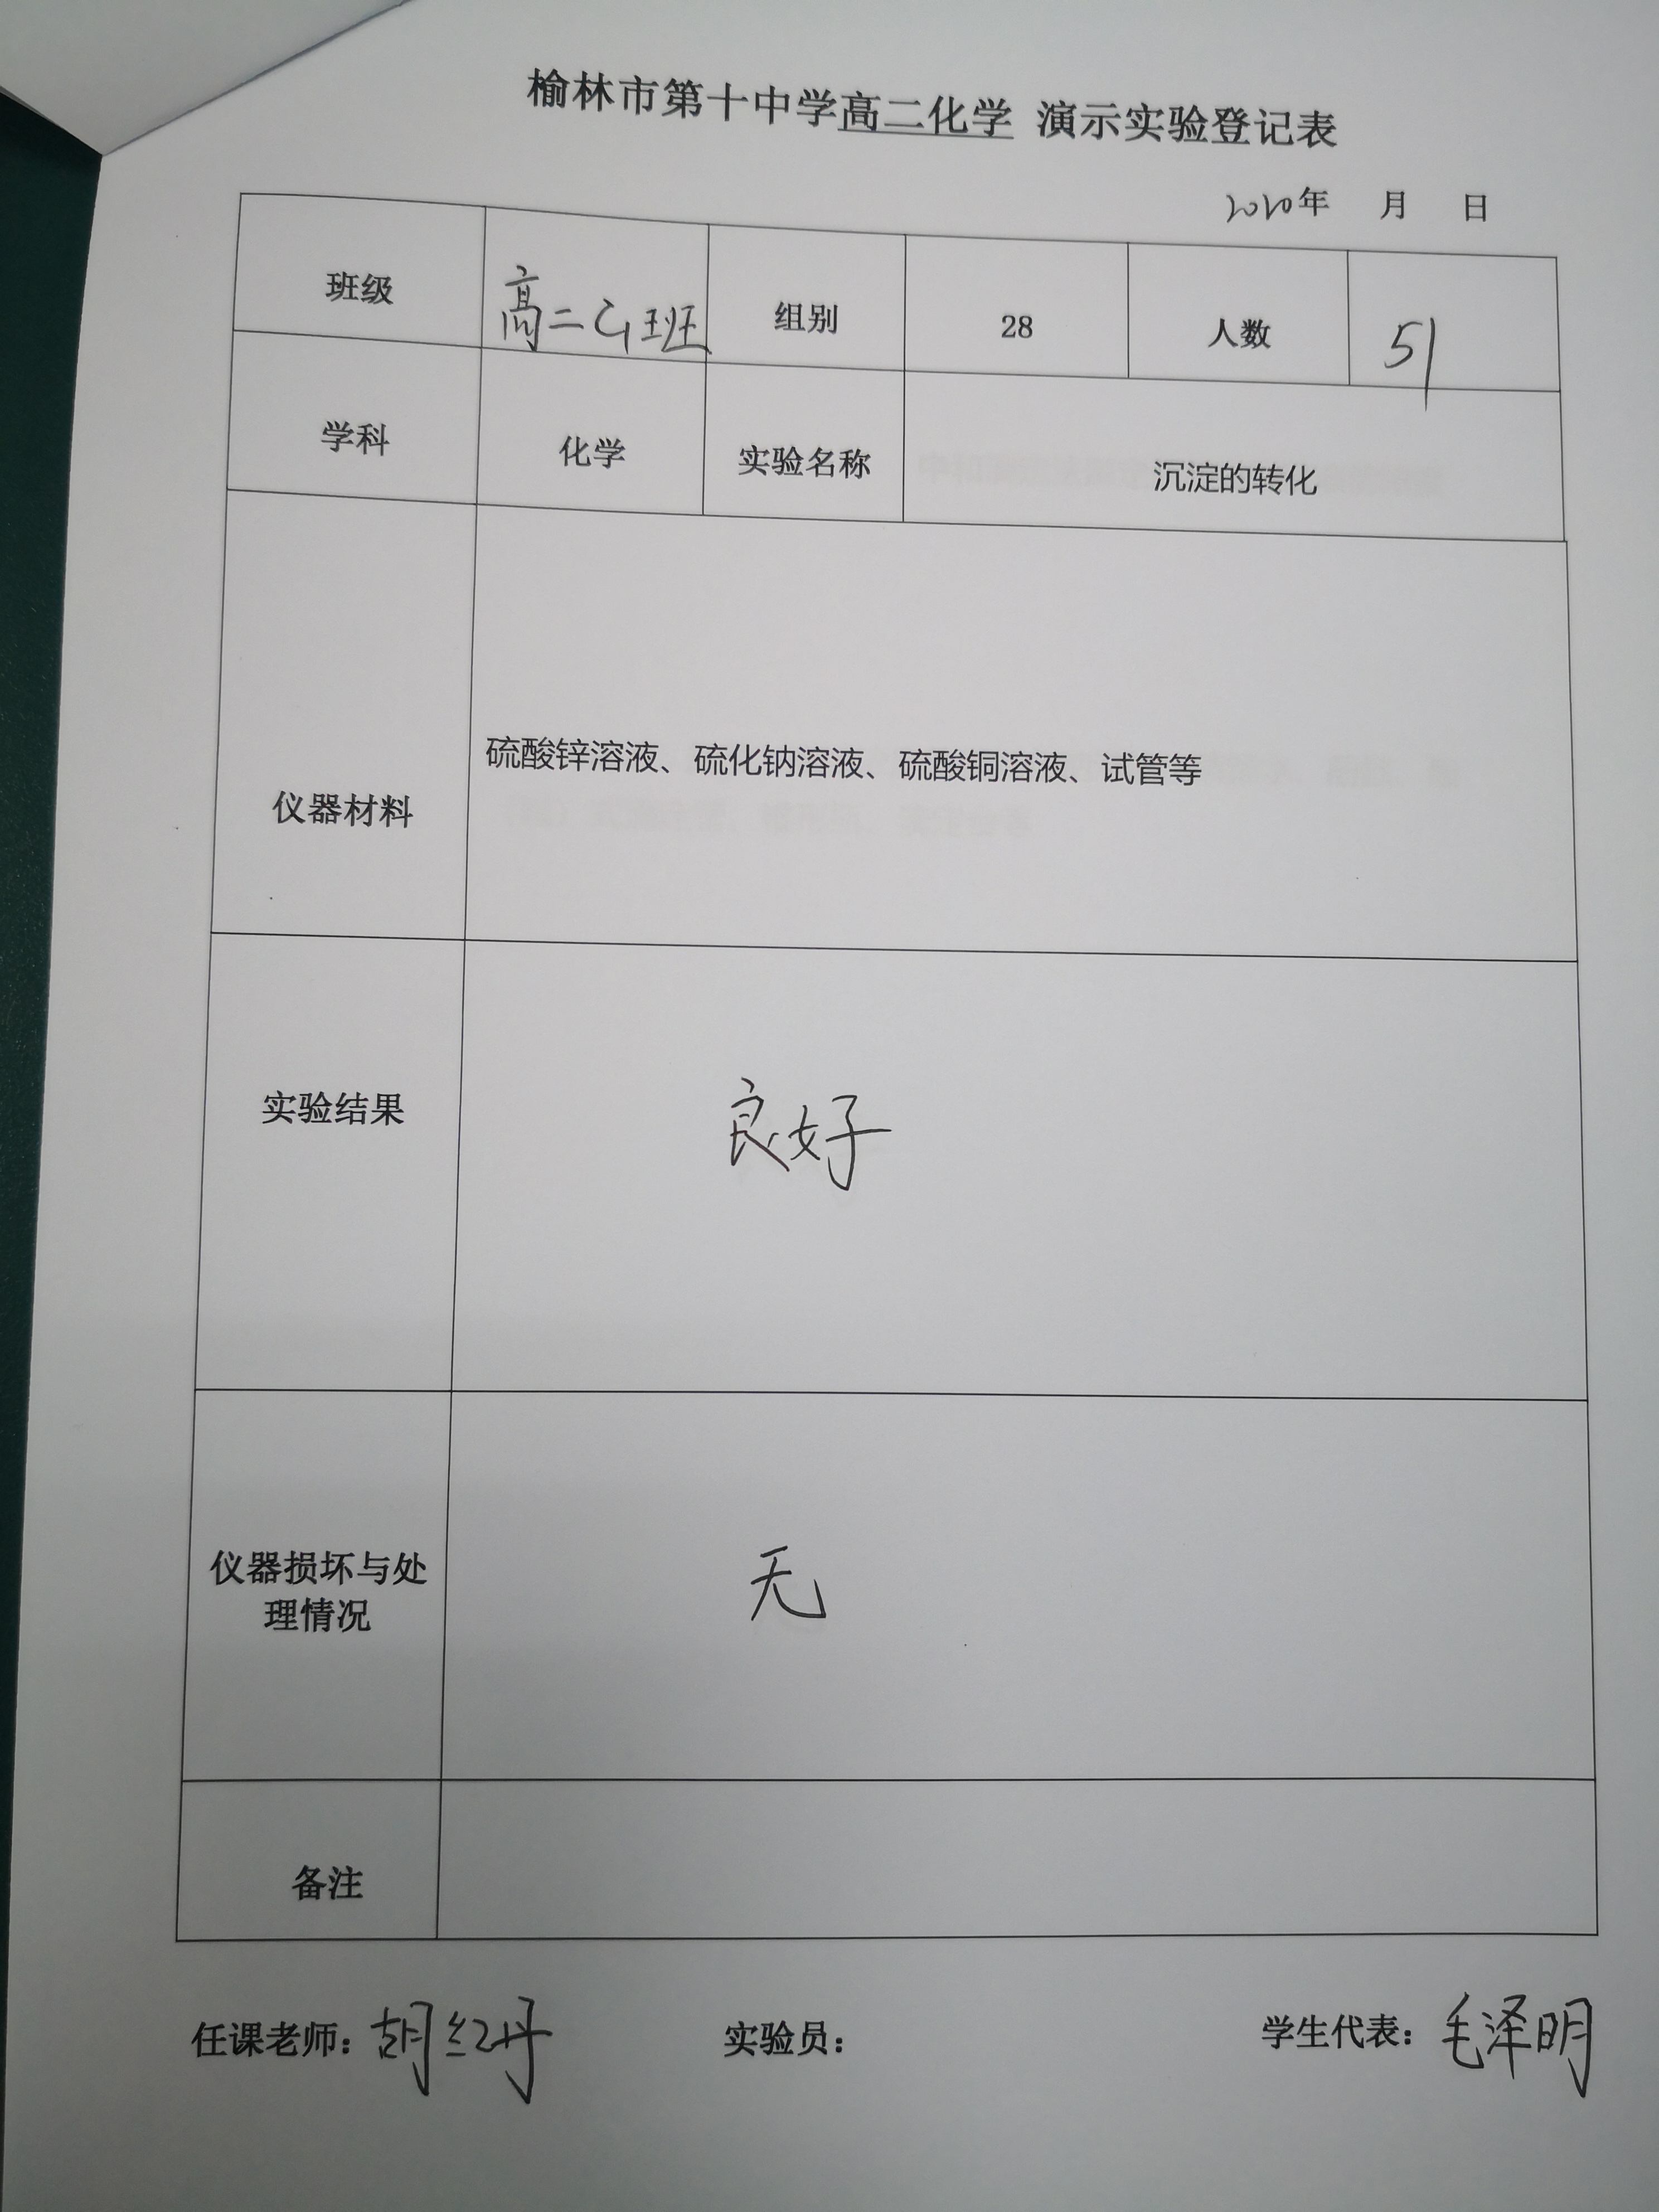 榆林市第十中学高二化学 演示实验登记表
2020年 月 日
班级 高二乙班 组别 28 人数 51
学科 化学 实验名称 沉淀的转化
仪器材料 硫酸锌溶液、硫化钠溶液、硫酸铜溶液、试管等
实验结果 良好
仪器损坏与处
理情况
无
备注
任课老师：胡红丹 实验员： 学生代表：毛泽明